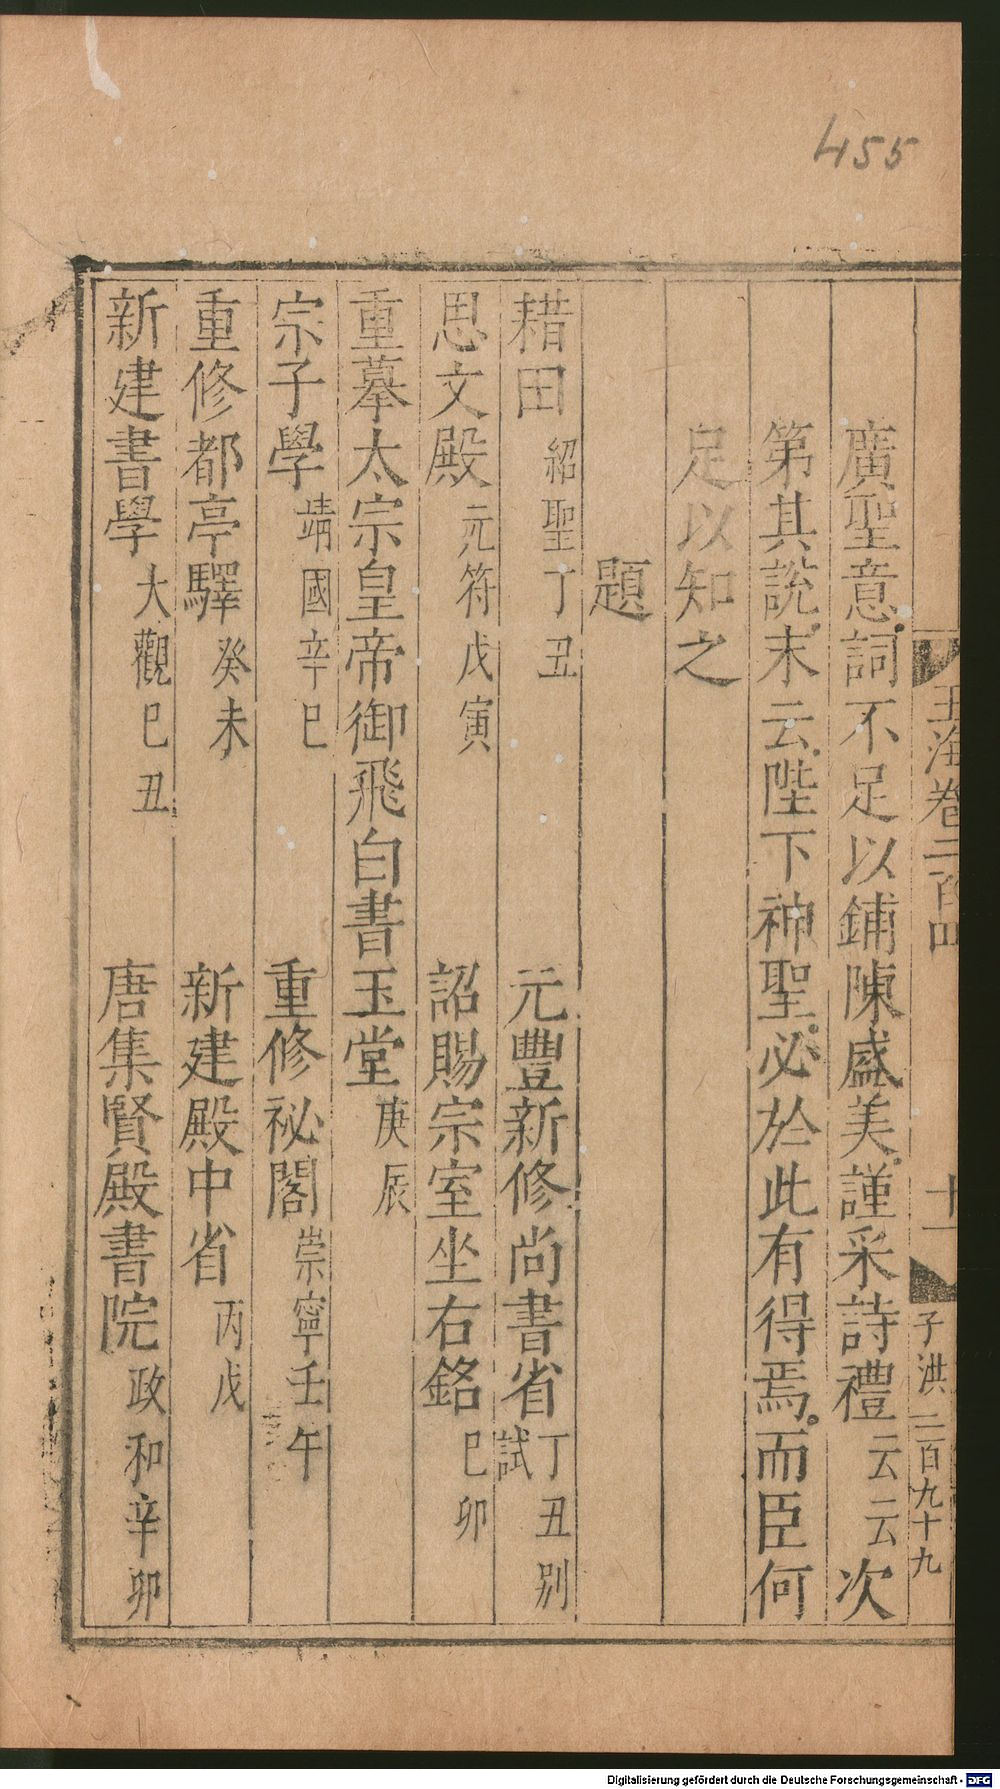 455
玉海卷二百四
十一
子洪
二百九十九
廣聖意詞不足以鋪陳盛美謹采詩禮云云次
第其說末云陛下神聖必於此有得焉而臣何
足以知之
題
耤田紹聖丁丑 元豐新修尚書省丁丑別試
思文殿元符戊寅 詔賜宗室坐右銘巳卯
重摹太宗皇帝御飛白書玉堂庚辰
宗子學靖國辛巳 重修祕閣崇寧壬午
重修都亭驛癸未 新建殿中省丙戌
新建書學大觀巳丑 唐集賢殿書院政和辛卯
Digitalisierung gefördert durch die Deutsche Forschungsgemeinschaft - DFG